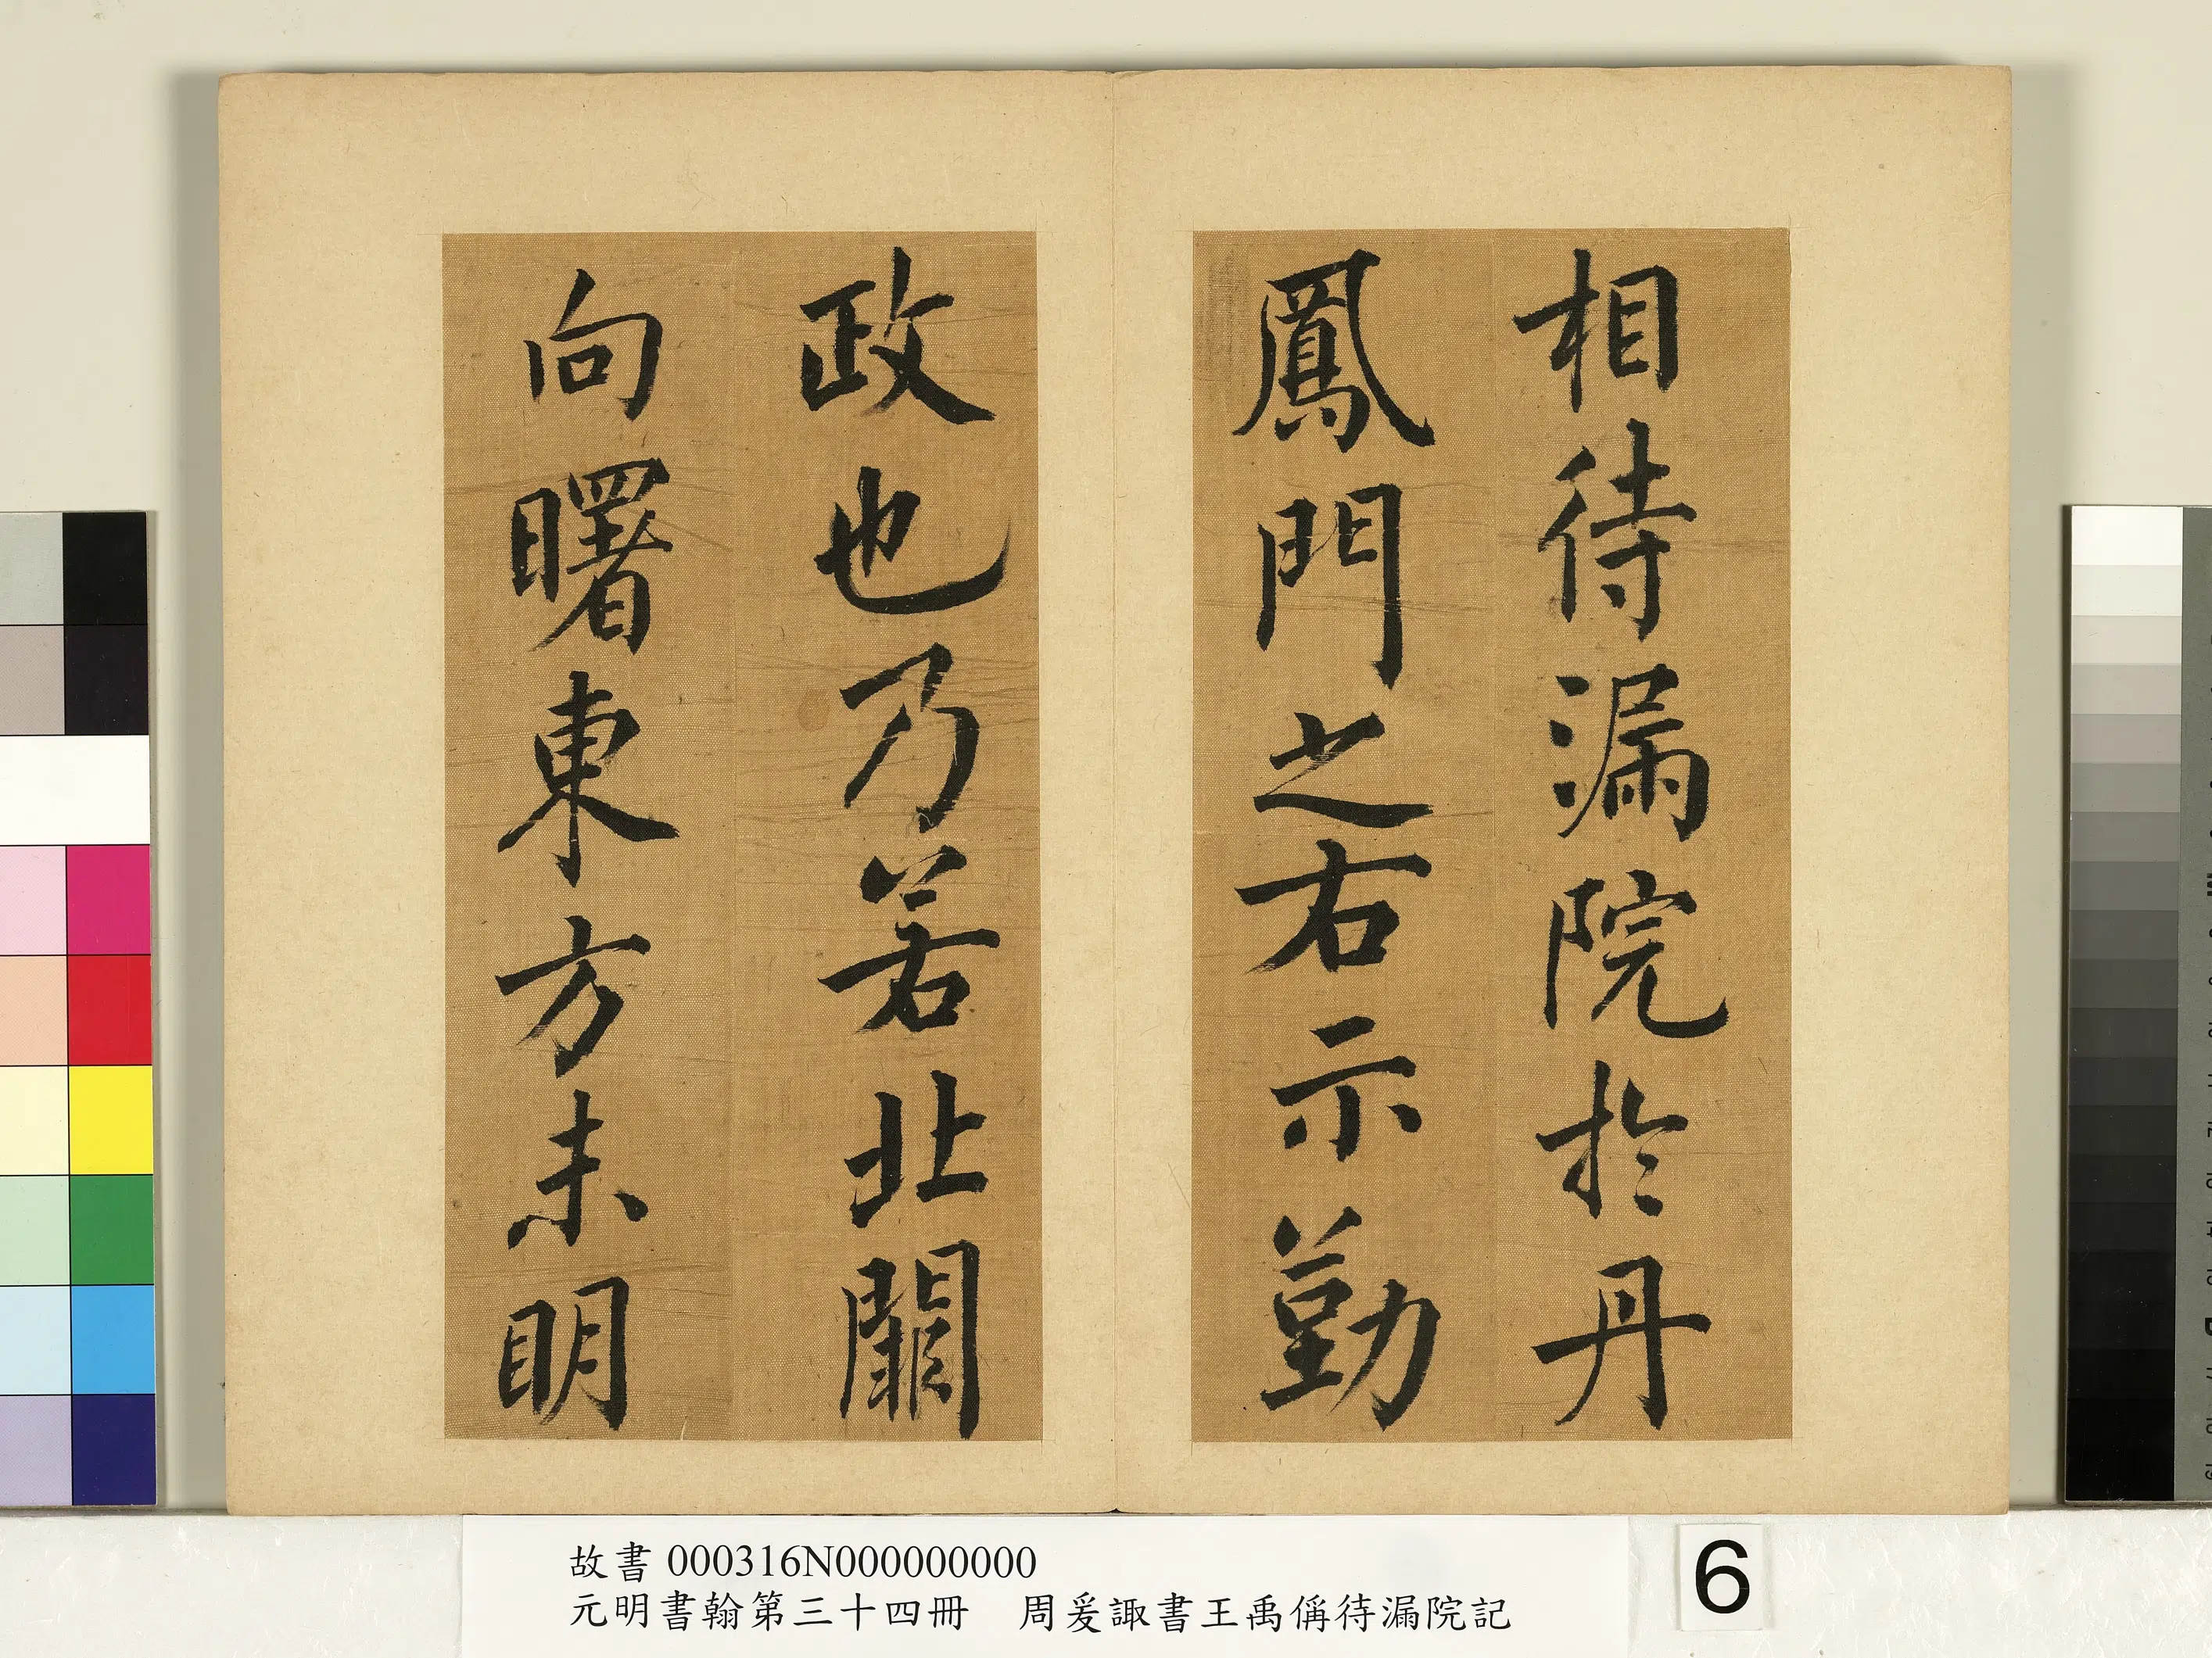 相待漏院於丹
鳳門之右示勤
政也乃若北闕
向曙東方未明
故書 000316N000000000
元明書翰第三十四冊　周爰諏書王禹偁待漏院記
6